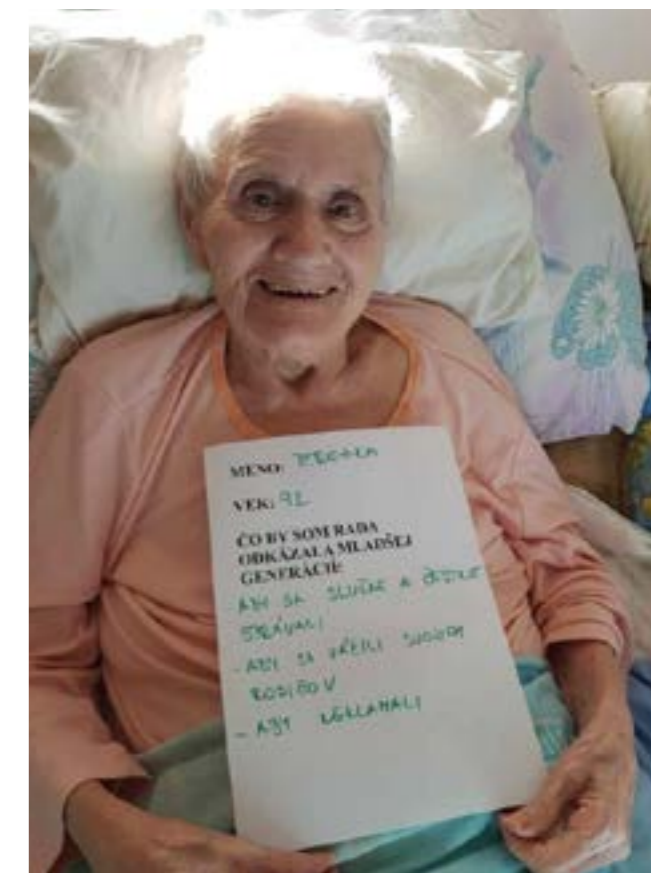 MENO: TEKLA
VEK: 92
ČO BY SOM RADA
ODKÁZALA MLADŠEJ
GENERÁCII:
ABY SA SLUŠNE A ČESTNE
SPRÁVALI
- ABY SA VÁŽILI SVOJICH
RODIČOV
- ABY NEKLAMALI